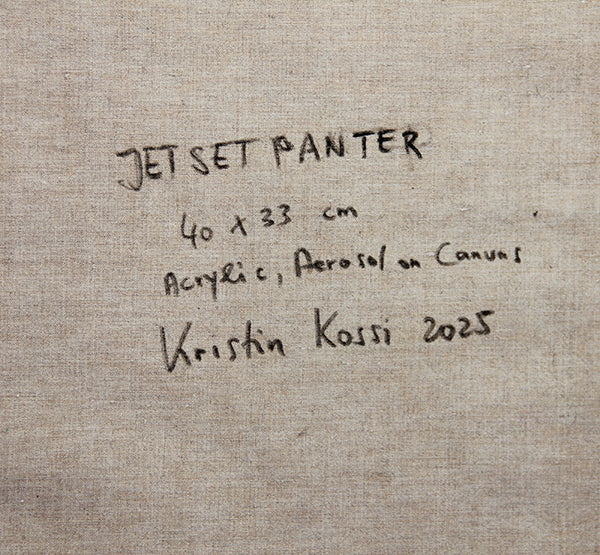 JETSET PANTER
40 x 33 cm
Acrylic, Aerosol on Canvas
Kristin Kossi 2025